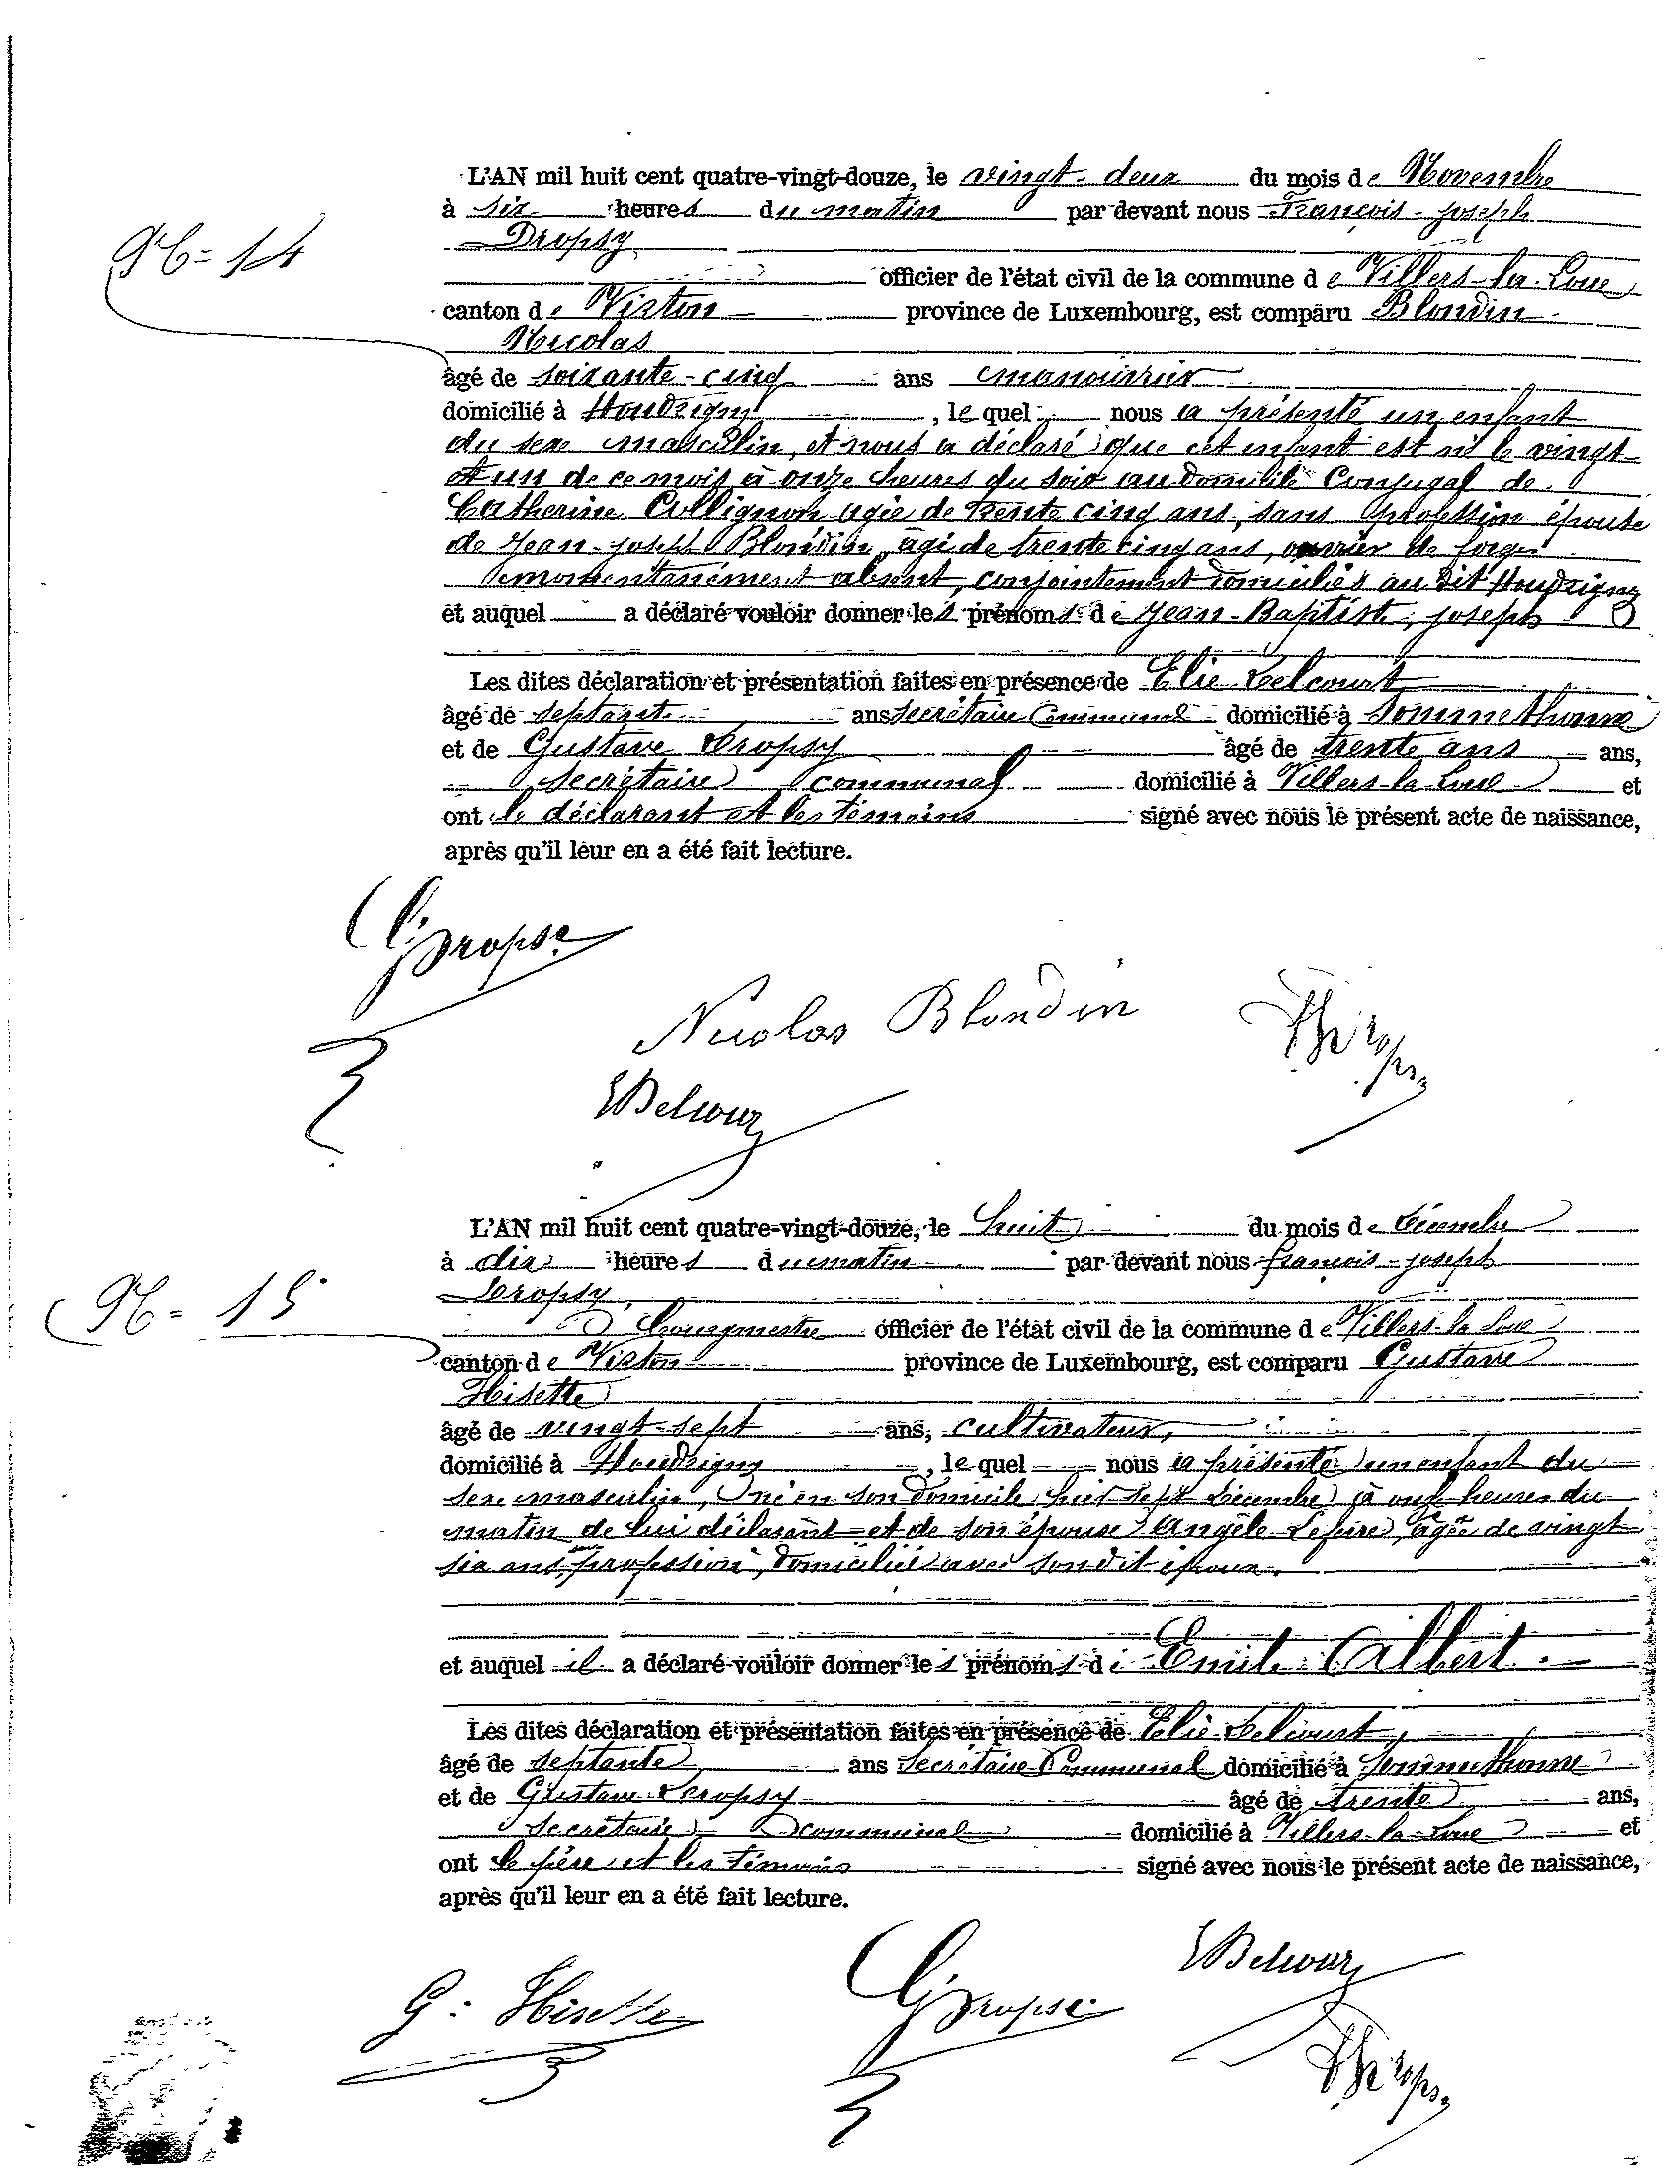 L'AN mil huit cent quatre-vingt-douze, le vingt-deux du mois de Novembre
à six heures du matin par devant nous François-joseph
Dropsy
N° 14
officier de l'état civil de la commune de Villers-la-Loue
canton de Virton province de Luxembourg, est comparu Blondin
Nicolas
âgé de soixante-cinq ans manouvrier
domicilié à Houdrigny, lequel nous a présenté un enfant
du sexe masculin, et nous a déclaré que cet enfant est né le vingt
et un de ce mois à onze heures du soir au domicile conjugal de
Catherine Collignon agée de trente cinq ans, sans profession épouse
de Jean-joseph Blondin, âgé de trente cinq ans, ouvrier de forges
momentanément absent, conjointement domiciliés au dit Houdrigny
et auquel a déclaré vouloir donner les prénoms de Jean-Baptiste, joseph
Les dites déclaration et présentation faites en présence de Elie Delcourt
âgé de septante ans secrétaire Communal domicilié à Sommethonne
et de Gustave Dropsy âgé de trente ans ans,
secrétaire communal domicilié à Villers-la-Loue et
ont le déclarant et les témoins signé avec nous le présent acte de naissance,
après qu'il leur en a été fait lecture.
G Dropsy
Nicolas Blondin
E Delcour
L'AN mil huit cent quatre-vingt-douze, le huit du mois de Décembre
à dix heures du matin par devant nous françois-joseph
Dropsy,
N° 15
Bourgmestre officier de l'état civil de la commune de Villers-la-Loue
canton de Virton province de Luxembourg, est comparu Gustave
Hisette
âgé de vingt-sept ans, cultivateur,
domicilié à Houdrigny, lequel nous a présenté un enfant du
sexe masculin, né en son domicile, hier sept Décembre à onze heures du
matin de lui déclarant et de son épouse Angèle Lefèvre, âgée de vingt
six ans, sans profession, domiciliée avec son dit époux.
et auquel il a déclaré vouloir donner les prénoms de Emile Albert.
Les dites déclaration et présentation faites en présence de Elie Delcourt,
âgé de septante ans Secrétaire Communal domicilié à Sommethonne
et de Gustave Dropsy âgé de trente ans,
Secrétaire communal domicilié à Villers-la-Loue et
ont le père et les témoins signé avec nous le présent acte de naissance,
après qu'il leur en a été fait lecture.
E Delcour
G. Hisette
G Dropsy